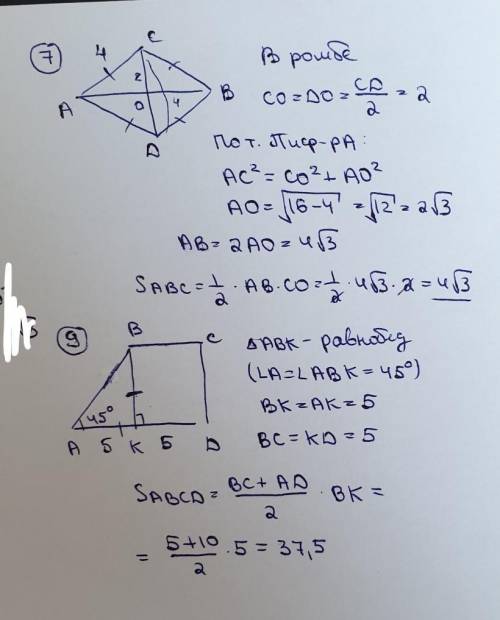 7
C
4
2
A
O
4
B
D
В ромбе
CO = DO = CD/2 = 2
По т. Пифаг-ра:
AC² = CO² + AO²
AO = √16-4 = √12 = 2√3
AB = 2AO = 4√3
SABC = 1/2 · AB · CO = 1/2 · 4√3 · 2 = 4√3
9
B
C
45°
A 5 K 5 D
△ABK - равнобед
(∠A = ∠ABK = 45°)
BK = AK = 5
BC = KD = 5
SABCD = BC + AD/2 · BK =
= 5+10/2 · 5 = 37,5